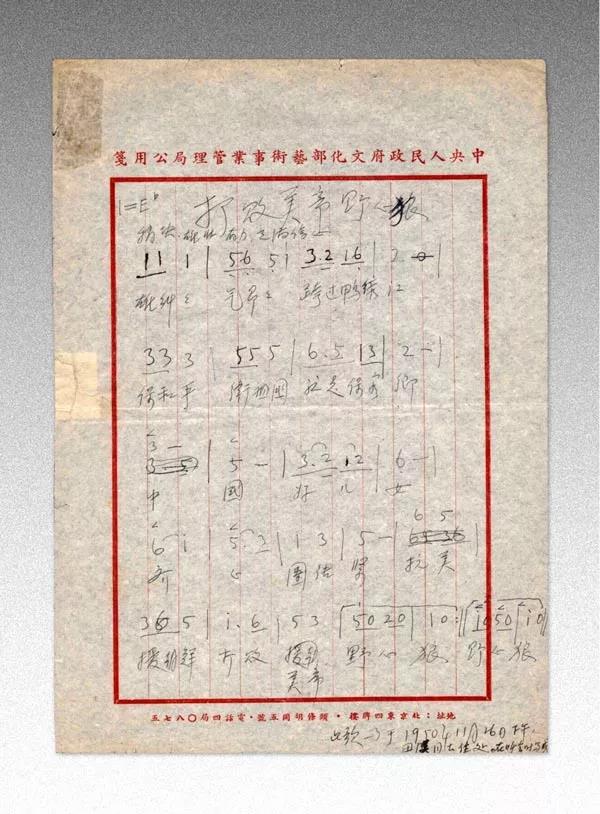 中央人民政府文化部藝術事業管理局公用箋
1=E♭ 打敗美帝野心狼
11 1 | 56 51 | 3.2 16 | 2 - |
雄糾々 气昂々 跨过鴨綠江
33 3 | 55 5 | 6.5 13 | 2 - |
保和平 衛祖國 就是保家鄉
3 - | 5 - | 3.2 12 | 6 - |
中 國 好 儿 女
6 i | 5.3 | 1 3 | 5 - | 6 5
齐 心 團結 緊 抗 美
36 5 | i.6 | 53 | 50 20 | 10 :|| i0 50 | i0 ||
援朝鮮 打敗 美帝 野心 狼 野心 狼
地址:北京東四牌樓·頭條胡同五號·電話四局〇八七五
1950年11月26日下午